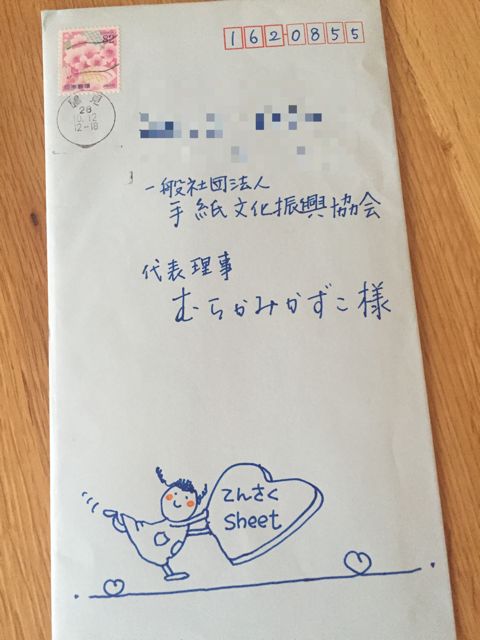 82
1620855
28
12-18
一般社団法人
手紙文化振興協会
代表理事
むらかみかずこ様
てんさく
Sheet